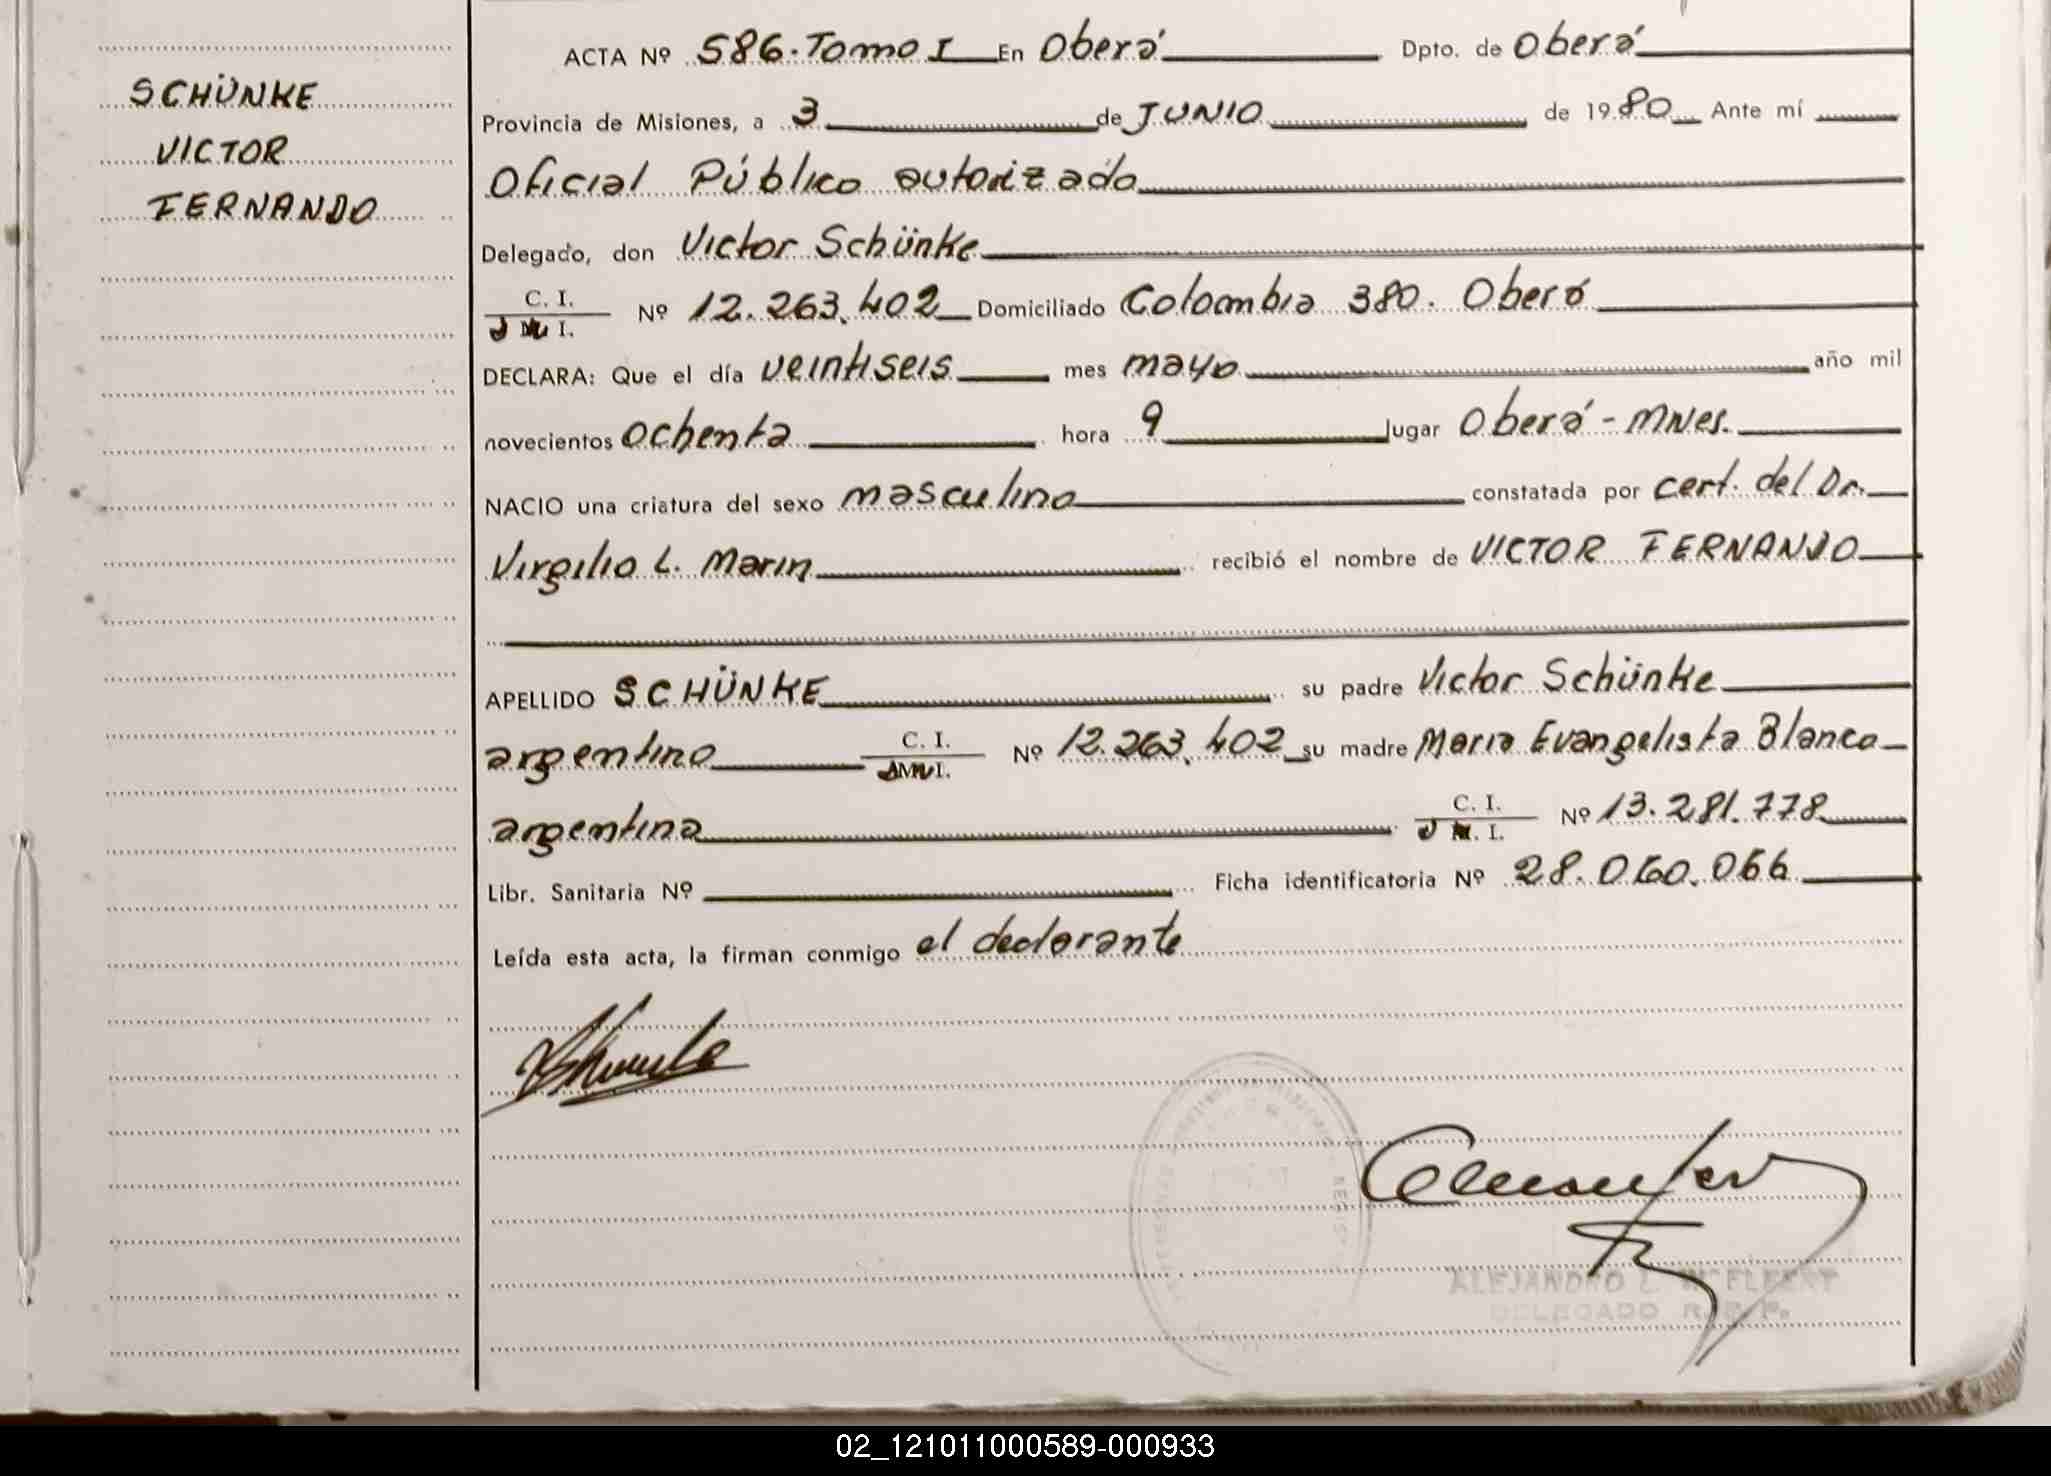 SCHÜNKE
VICTOR
FERNANDO
ACTA Nº 586. Tomo I En Oberá Dpto. de Oberá
Provincia de Misiones, a 3 de JUNIO de 1980 Ante mí
Oficial Público autorizado
Delegado, don Victor Schünke
C. I.
Nº 12.263.402 Domiciliado Colombia 380. Oberá
I.
DECLARA: Que el día veintiseis mes mayo año mil
novecientos ochenta hora 9 lugar Oberá - MNes.
NACIO una criatura del sexo masculino constatada por cert. del Dr.
Virgilio L. Marin recibió el nombre de VICTOR FERNANDO
APELLIDO SCHÜNKE su padre Victor Schünke
argentino C. I. Nº 12.263.402 su madre Maria Evangelista Blanco
I.
argentina C. I. Nº 13.281.778
I.
Libr. Sanitaria Nº Ficha identificatoria Nº 28.060.066
Leída esta acta, la firman conmigo el declarante
ALEJANDRO L.
DELEGADO R. P.
02_121011000589-000933